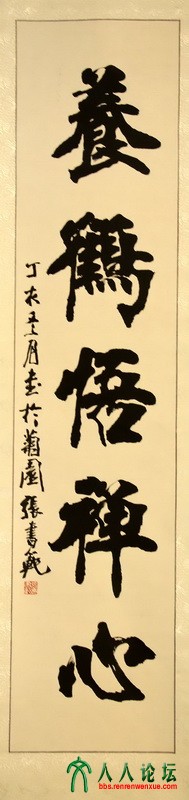 養鶴悟禪心
丁亥五月書於菊園張書範
人人论坛
bbs.renrenwenxue.com